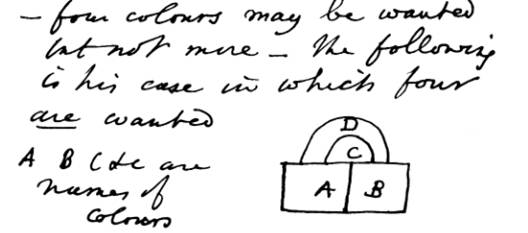 – four colours may be wanted
but not more – the following
is his case in which four
are wanted
D
C
A B C &c are
names of
colours
A B